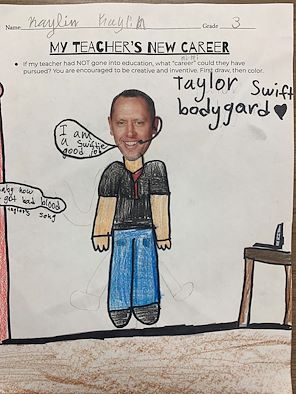 Name Kaylin Kaylin Grade 3
MY TEACHER'S NEW CAREER
• If my teacher had NOT gone into education, what "career" could they have
pursued? You are encouraged to be creative and inventive. First draw, then color.
Taylor Swift
bodygard
I am
a Swiftie
good job
baby now
got bad blood
Taylors song